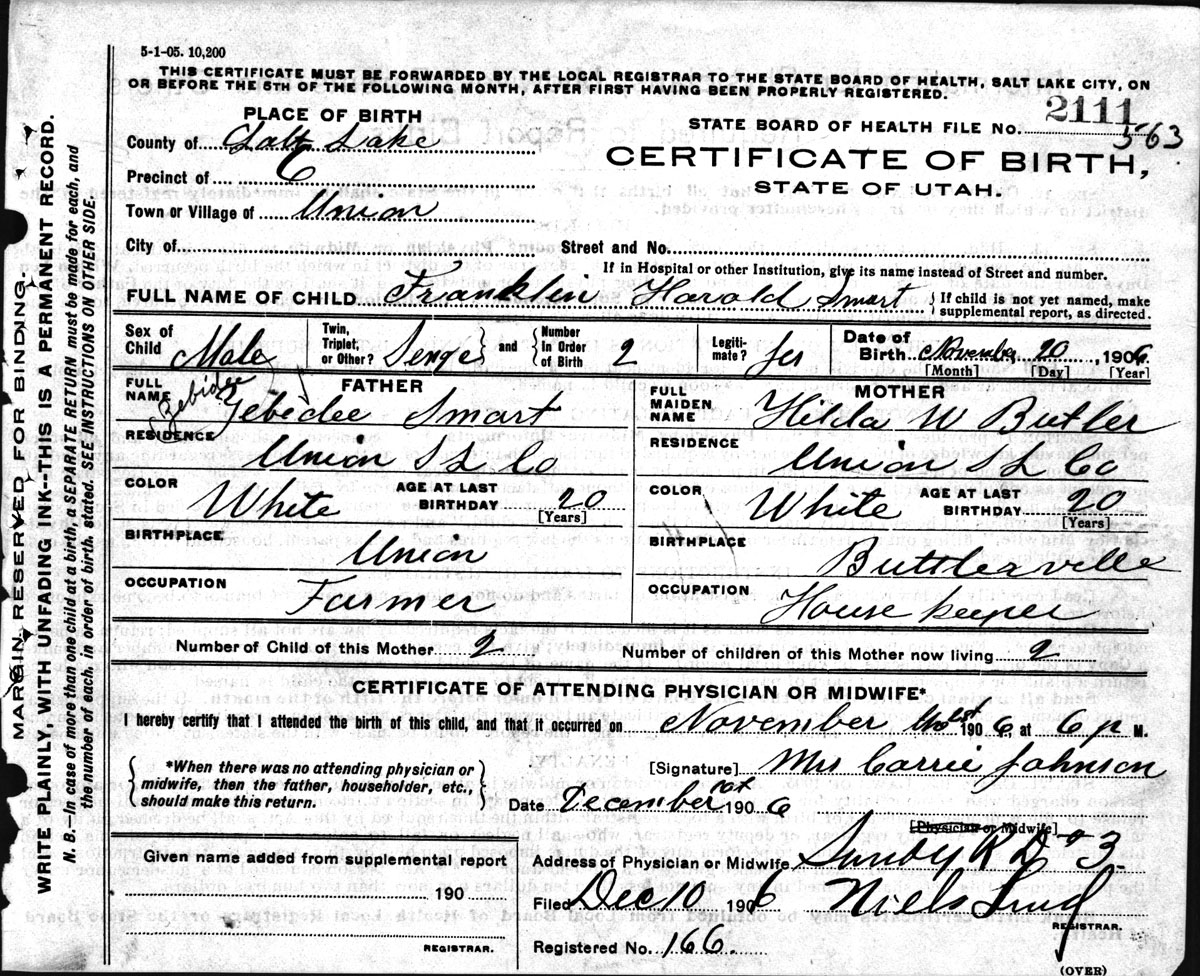 5-1-05. 10,200
THIS CERTIFICATE MUST BE FORWARDED BY THE LOCAL REGISTRAR TO THE STATE BOARD OF HEALTH, SALT LAKE CITY, ON
OR BEFORE THE 5TH OF THE FOLLOWING MONTH, AFTER FIRST HAVING BEEN PROPERLY REGISTERED.
PLACE OF BIRTH
County of Salt Lake
Precinct of 6
Town or Village of Union
City of
STATE BOARD OF HEALTH FILE NO. 2111
563
CERTIFICATE OF BIRTH,
STATE OF UTAH.
Street and No.
If in Hospital or other Institution, give its name instead of Street and number.
FULL NAME OF CHILD Franklin Harold Smart { If child is not yet named, make
supplemental report, as directed.
Sex of Child Male
Twin, Triplet, or Other? } and { Number In Order of Birth 2
Legiti-mate? yes
Date of Birth November 20 1906
[Month] [Day] [Year]
FATHER
FULL NAME Zebidee Zebidee Smart
RESIDENCE Union S L Co
COLOR White AGE AT LAST BIRTHDAY 20
[Years]
BIRTHPLACE Union
OCCUPATION Farmer
MOTHER
FULL MAIDEN NAME Hilda W Butler
RESIDENCE Union S L Co
COLOR White AGE AT LAST BIRTHDAY 20
[Years]
BIRTHPLACE Buttlerville
OCCUPATION House keeper
Number of Child of this Mother 2 Number of children of this Mother now living 2
CERTIFICATE OF ATTENDING PHYSICIAN OR MIDWIFE*
I hereby certify that I attended the birth of this child, and that it occurred on November 1906, at 6 p M.
{ *When there was no attending physician or
midwife, then the father, householder, etc.,
should make this return. }
[Signature] Mrs Carrie Johnson
Date December 10th 1906
[Physician or Midwife]
Given name added from supplemental report
190
REGISTRAR.
Address of Physician or Midwife Sandy R D no 3
Filed Dec 10 1906 Niels
REGISTRAR.
Registered No. 166.
(OVER)
MARGIN RESERVED FOR BINDING.
WRITE PLAINLY, WITH UNFADING INK--THIS IS A PERMANENT RECORD.
N. B.--In case of more than one child at a birth, a SEPARATE RETURN must be made for each, and
the number of each, in order of birth, stated. SEE INSTRUCTIONS ON OTHER SIDE.